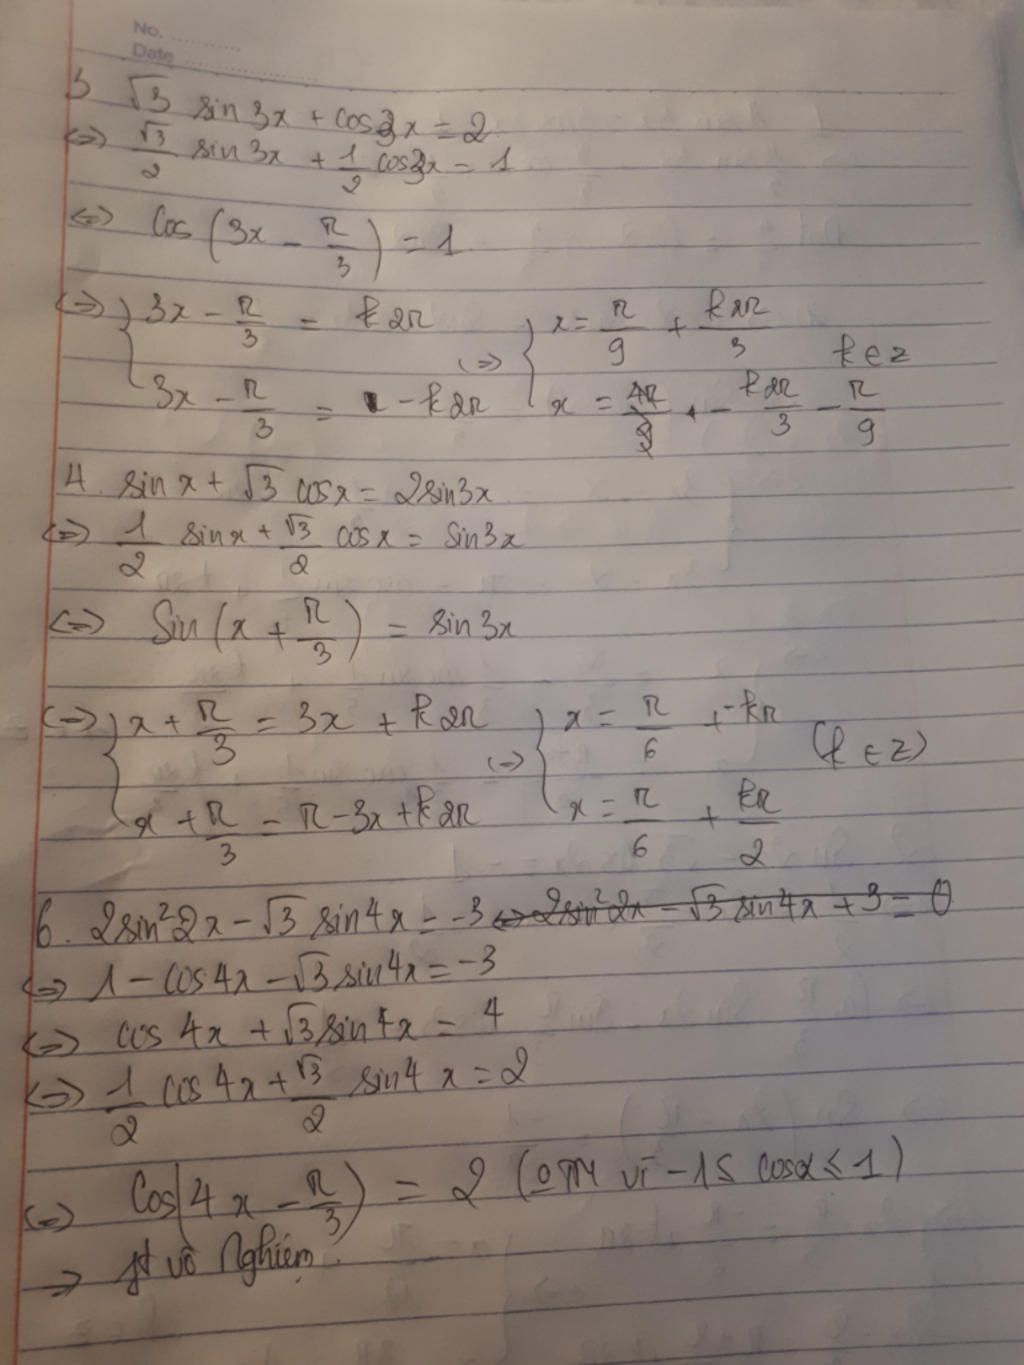 No. ............
Date ........................
3 √3 sin3x + cos3x = 2
<=> √3/2 sin3x + 1/2 cos3x = 1
<=> Cos (3x - π/3) = 1
<=> { 3x - π/3 = k2π <=> { x = π/9 + k2π/3 k∈Z
3x - π/3 = -k2π x = - k2π/3 - π/9
4. sinx + √3 cosx = 2sin3x
<=> 1/2 sinx + √3/2 cosx = sin3x
<=> Sin (x + π/3) = sin3x
<=> { x + π/3 = 3x + k2π <=> { x = π/6 + -kπ (k ∈ Z)
x + π/3 = π - 3x + k2π x = π/6 + kπ/2
6. 2sin²2x - √3 sin4x = -3 <=> 2sin²2x - √3 sin4x + 3 = 0
<=> 1 - cos4x - √3 sin4x = -3
<=> cos 4x + √3 sin4x = 4
<=> 1/2 cos4x + √3/2 sin4x = 2
<=> Cos(4x - π/3) = 2 (0TM vì -1 ≤ cosα ≤ 1)
=> pt vô Nghiệm.